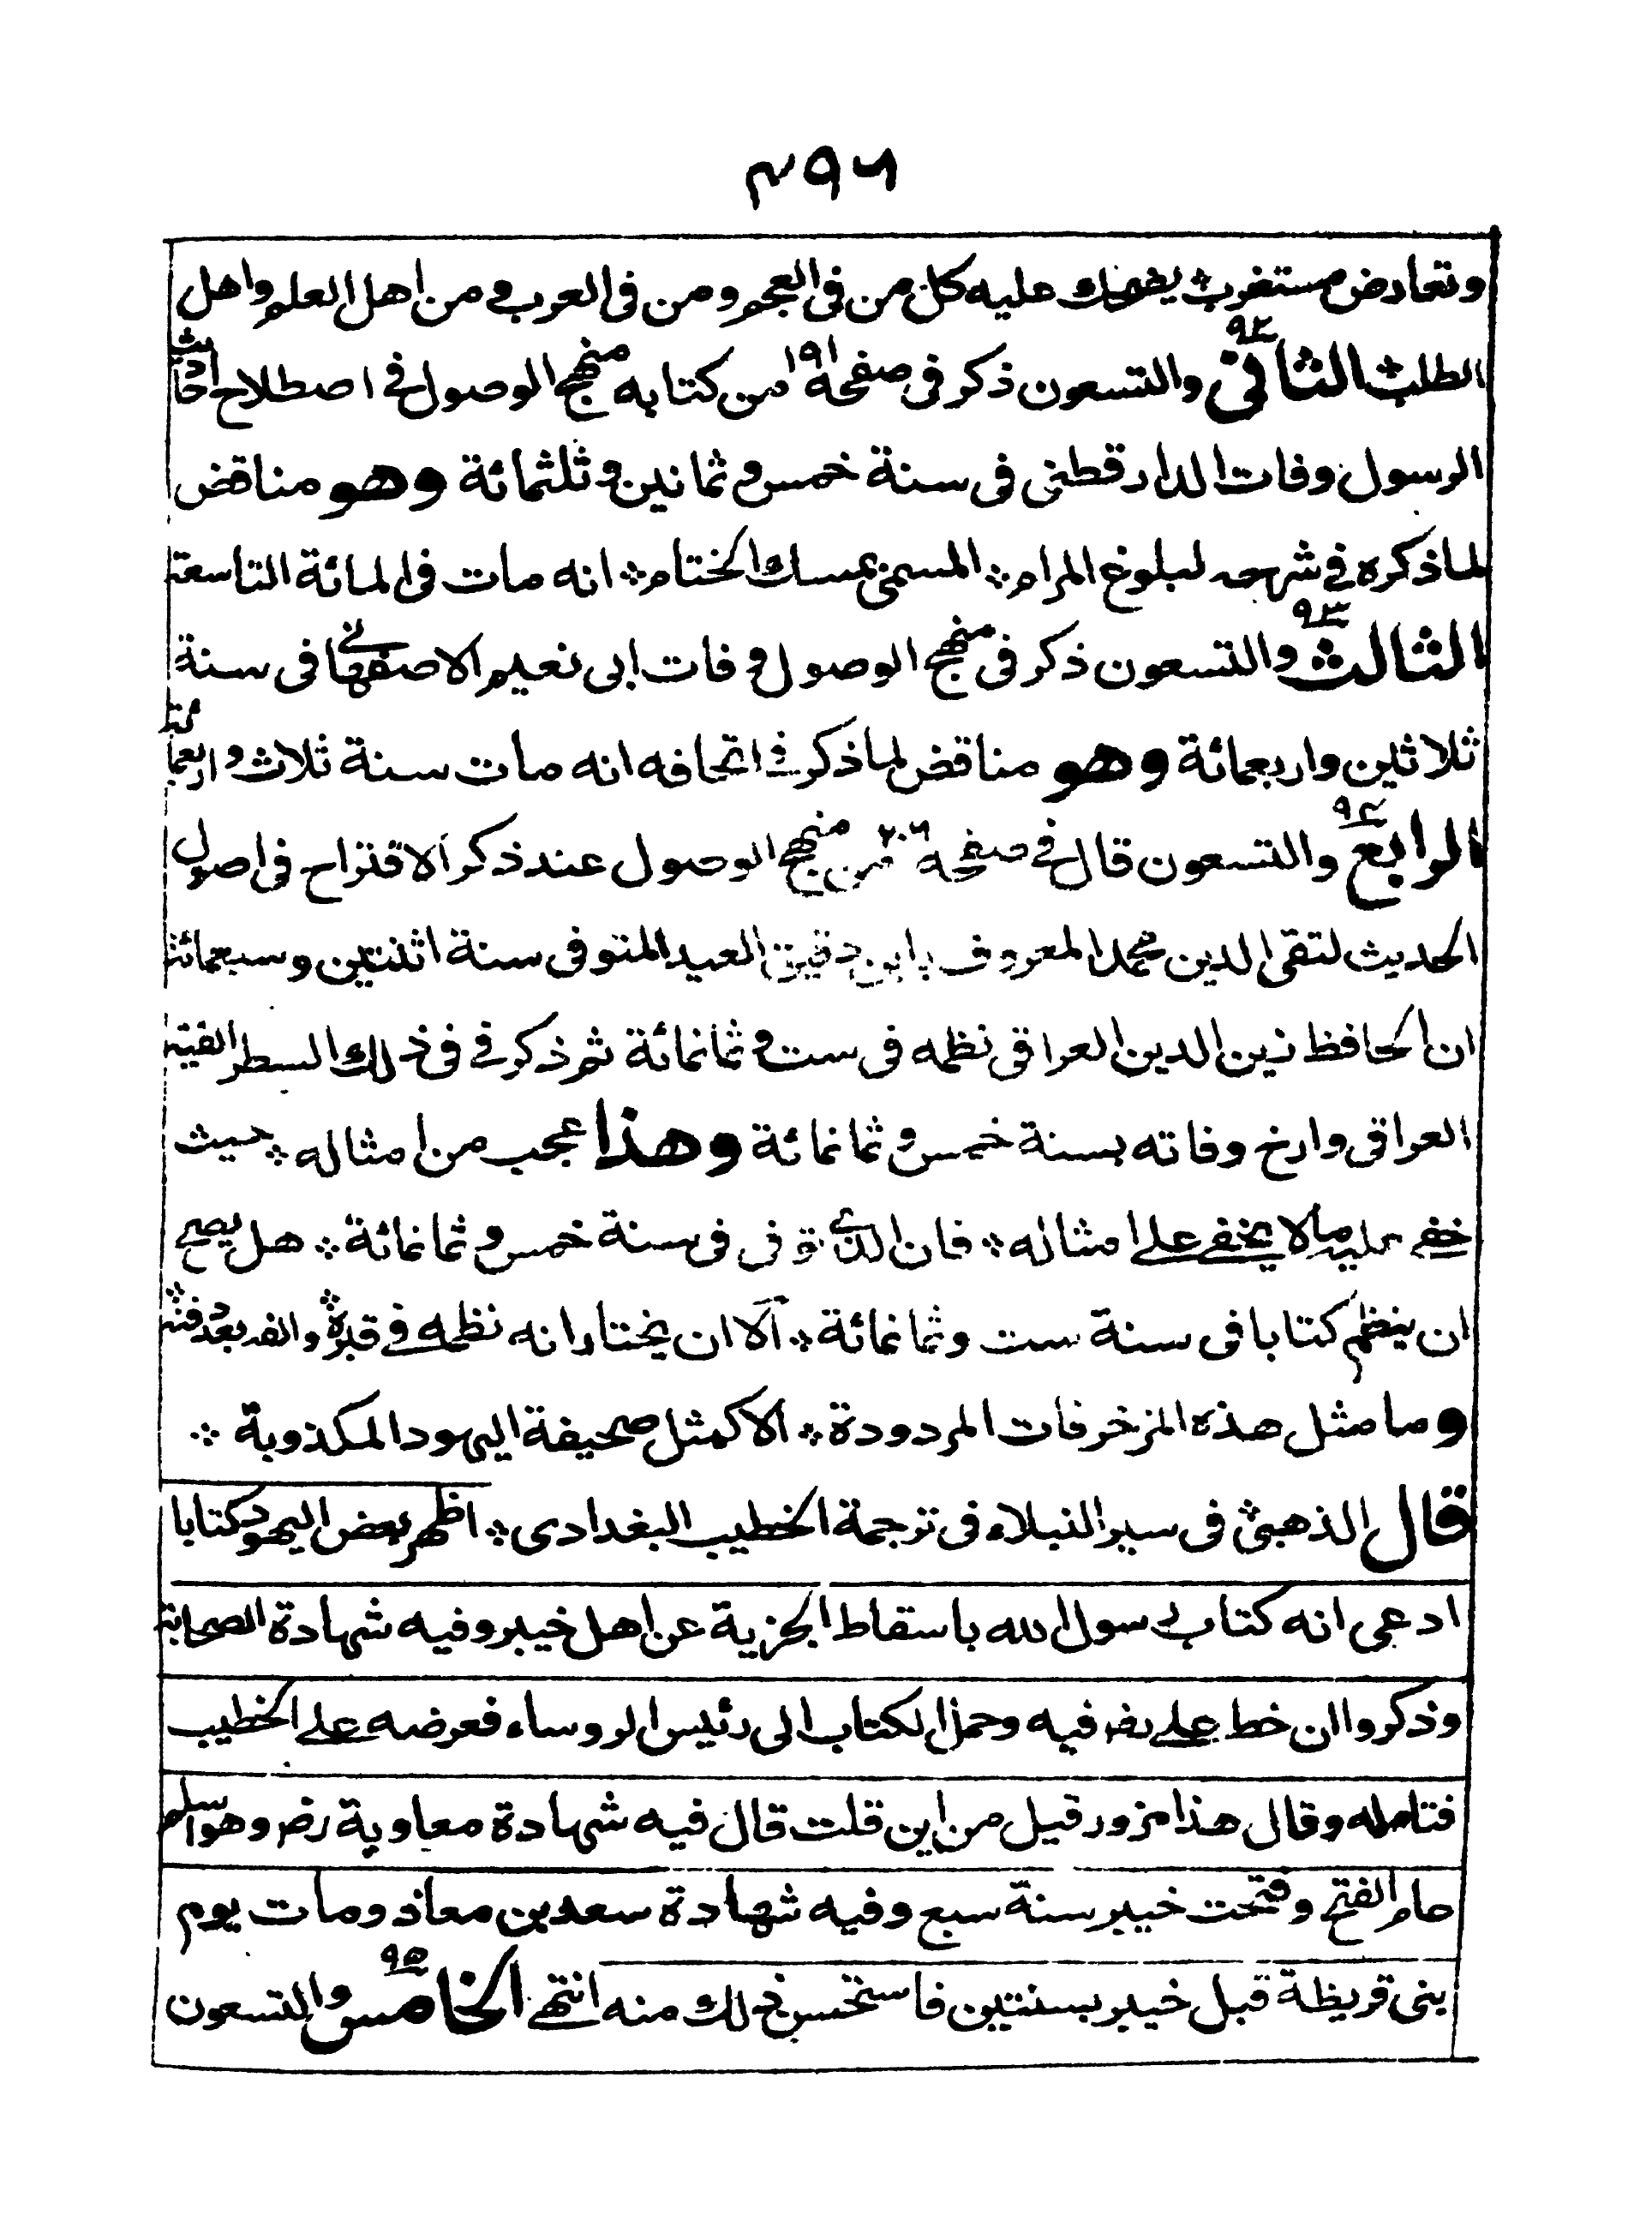 ٣٩٦
وتعارض مستغرب ⁂ يضحك عليه كل من فى العجم ومن فى العرب ⁂ من اهل العلم واهل
الطلب ⁂ الثانى ٩٢ والتسعون ذكر فى صفحة ١٩١ من كتابه منهج الوصول فى اصطلاح احاديث
الرسول وفات الدارقطنى فى سنة خمس وثمانين وثلثمائة وهو مناقض
لما ذكره فى شرحه لبلوغ المرام ⁂ المسمى بمسك الختام ⁂ انه مات فى المائة التاسعة
الثالث ٩٣ والتسعون ذكر فى منهج الوصول وفات ابى نعيم الاصفهانى فى سنة
ثلاثين واربعمائة وهو مناقض لما ذكر فى اتحافه انه مات سنة ثلاث واربعمائة
الرابع ٩٤ والتسعون قال فى صفحة ٢٠٦ من منهج الوصول عند ذكر الاقتراح فى اصول
الحديث لتقى الدين محمد المعروف بابن دقيق العيد المتوفى سنة اثنتين وسبعمائة
ان الحافظ زين الدين العراقى نظمه فى ست وثمانمائة ثم ذكر فى ذلك السطر الفية
العراقى وارخ وفاته بسنة خمس وثمانمائة وهذا عجب من امثاله ⁂ حيث
خفى عليه مالا يخفى على امثاله ⁂ فان الذى توفى فى سنة خمس وثمانمائة ⁂ هل يصح
ان ينظم كتابا فى سنة ست وثمانمائة ⁂ الا ان يختار انه نظمه فى قبره ⁂ والفه بعد دفنه ⁂
وما مثل هذه المزخرفات المردودة ⁂ الا كمثل صحيفة اليهود المكذوبة ⁂
قال الذهبى فى سير النبلاء فى ترجمة الخطيب البغدادى ⁂ اظهر بعض اليهود كتابا
ادعى انه كتاب رسول الله باسقاط الجزية عن اهل خيبر وفيه شهادة الصحابة
وذكروا ان خط على رض فيه وحمل الكتاب الى رئيس الروساء فعرضه على الخطيب
فتامله وقال هذا مزور قيل من اين قلت قال فيه شهادة معاوية رض وهو اسلم
عام الفتح وفتحت خيبر سنة سبع وفيه شهادة سعد بن معاذ ومات يوم
بنى قريظة قبل خيبر بسنتين فاستحسن ذلك منه انتهى الخامس ٩٥ والتسعون